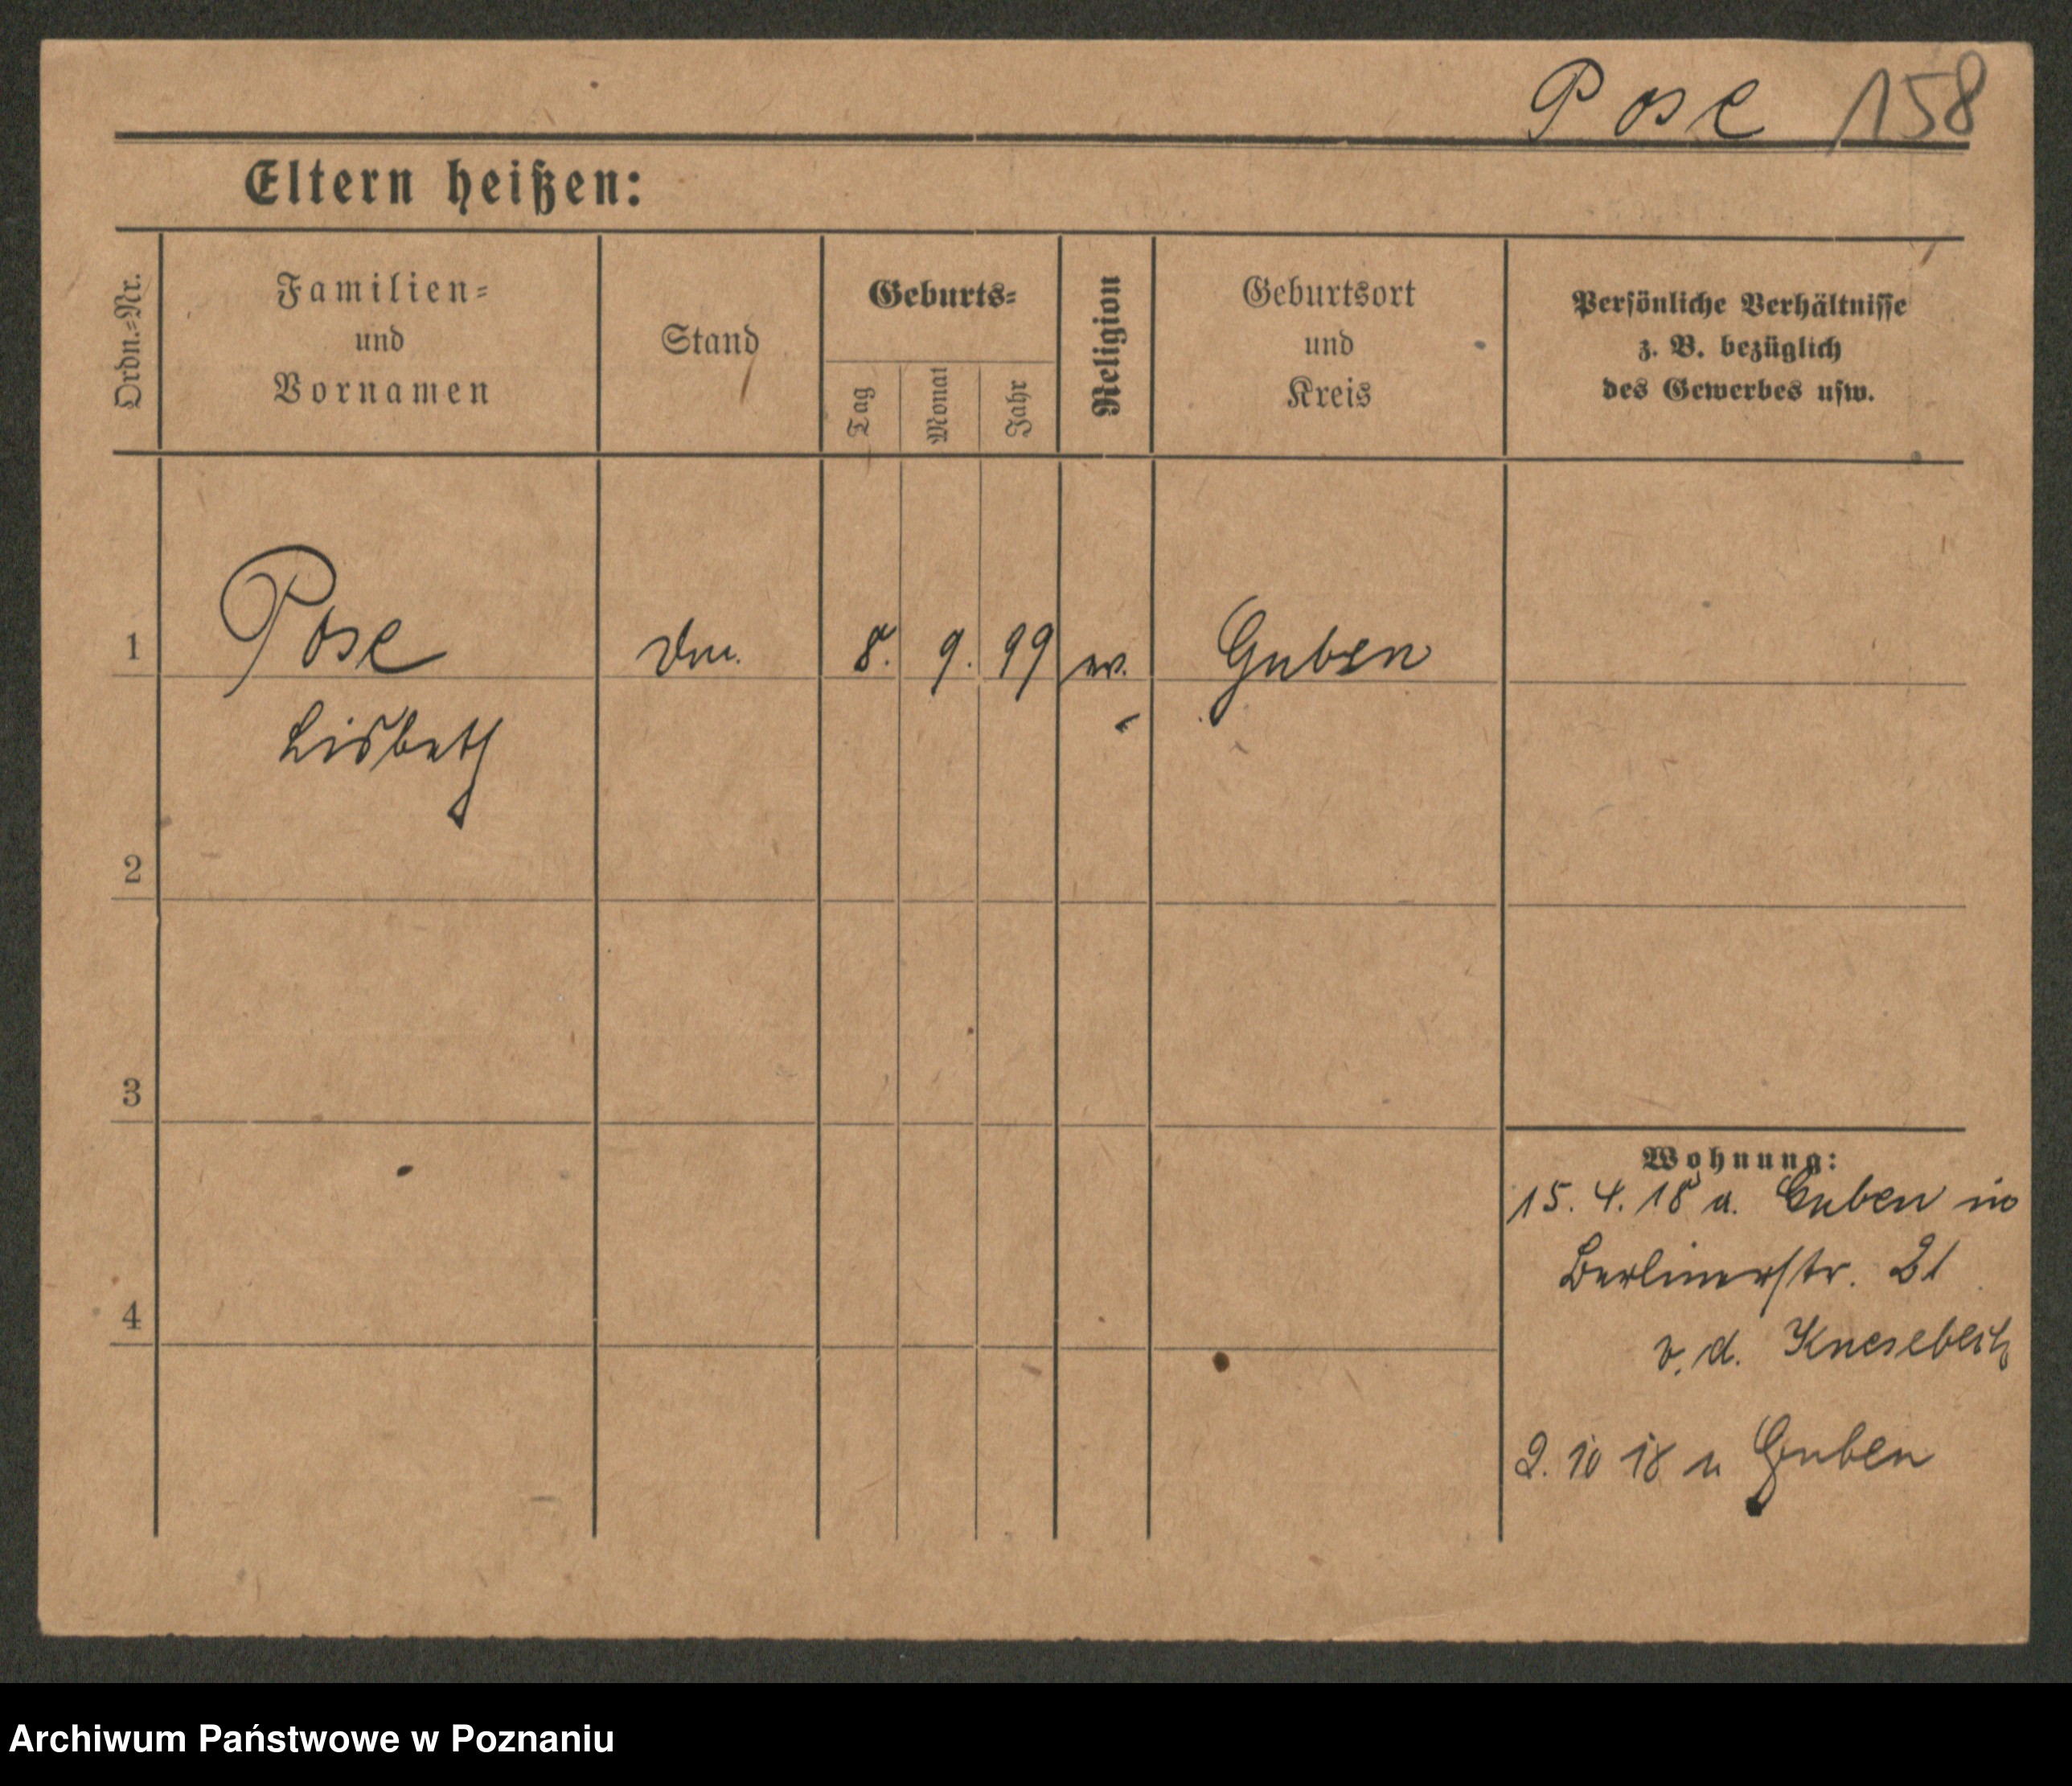 Pose 158
Eltern heißen:
Ordn.-Nr.
Familien=
und
Vornamen
Stand
Geburts=
Tag
Monat
Jahr
Religion
Geburtsort
und
Kreis
Persönliche Verhältnisse
z. B. bezüglich
des Gewerbes usw.
1 Pose 8. 9. 99 ev. Guben
Lisbeth
2
3
4
Wohnung:
15. 4. 18 a. Guben in
Berlinerstr. 21
v. d. Knesebeck
2. 10 18 n Guben
Archiwum Państwowe w Poznaniu